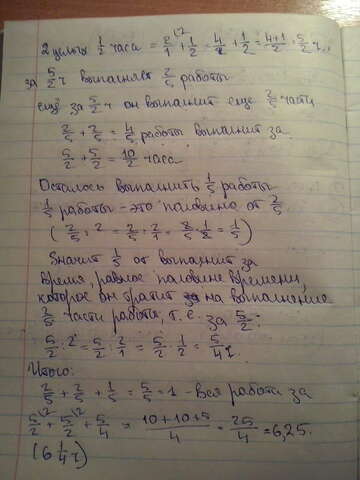 2 целых 1/2 часа = 2/1 + 1/2 = 4/2 + 1/2 = 4+1/2 = 5/2 ч.
за 5/2 ч выполняет 2/5 работы
ещё за 5/2 ч он выполнит еще 2/5 части
2/5 + 2/5 = 4/5 работы выполнит за
5/2 + 5/2 = 10/2 часа
Осталось выполнить 1/5 работы
1/5 работы - это половина от 2/5.
( 2/5 : 2 = 2/5 : 2/1 = 1/5 )
Значит 1/5 он выполнит за
время, равное половине времени,
которое он тратит на выполнение
2/5 части работы, т.е. за 5/2:
5/2 : 2 = 5/2 : 2/1 = 5/2 · 1/2 = 5/4 ч.
Итого:
2/5 + 2/5 + 1/5 = 5/5 = 1 - вся работа за
5/2 + 5/2 + 5/4 = 10+10+5/4 = 25/4 = 6,25.
(6 1/4 ч)